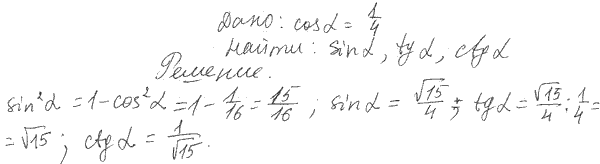 Дано: cos α = 1/4
Найти: sin α, tg α, ctg α
Решение.
sin²α = 1 - cos²α = 1 - 1/16 = 15/16 ; sin α = √15/4 ; tg α = √15/4 : 1/4 =
= √15 ; ctg α = 1/√15 .